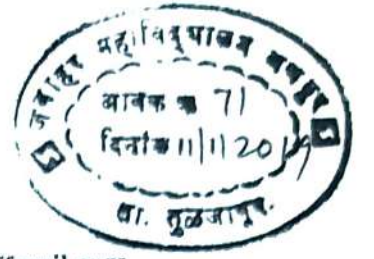 जवाहर महाविद्यालय अणदूर
आवक क्र 71
दिनांक 11/11/2019
ता. तुळजापूर.